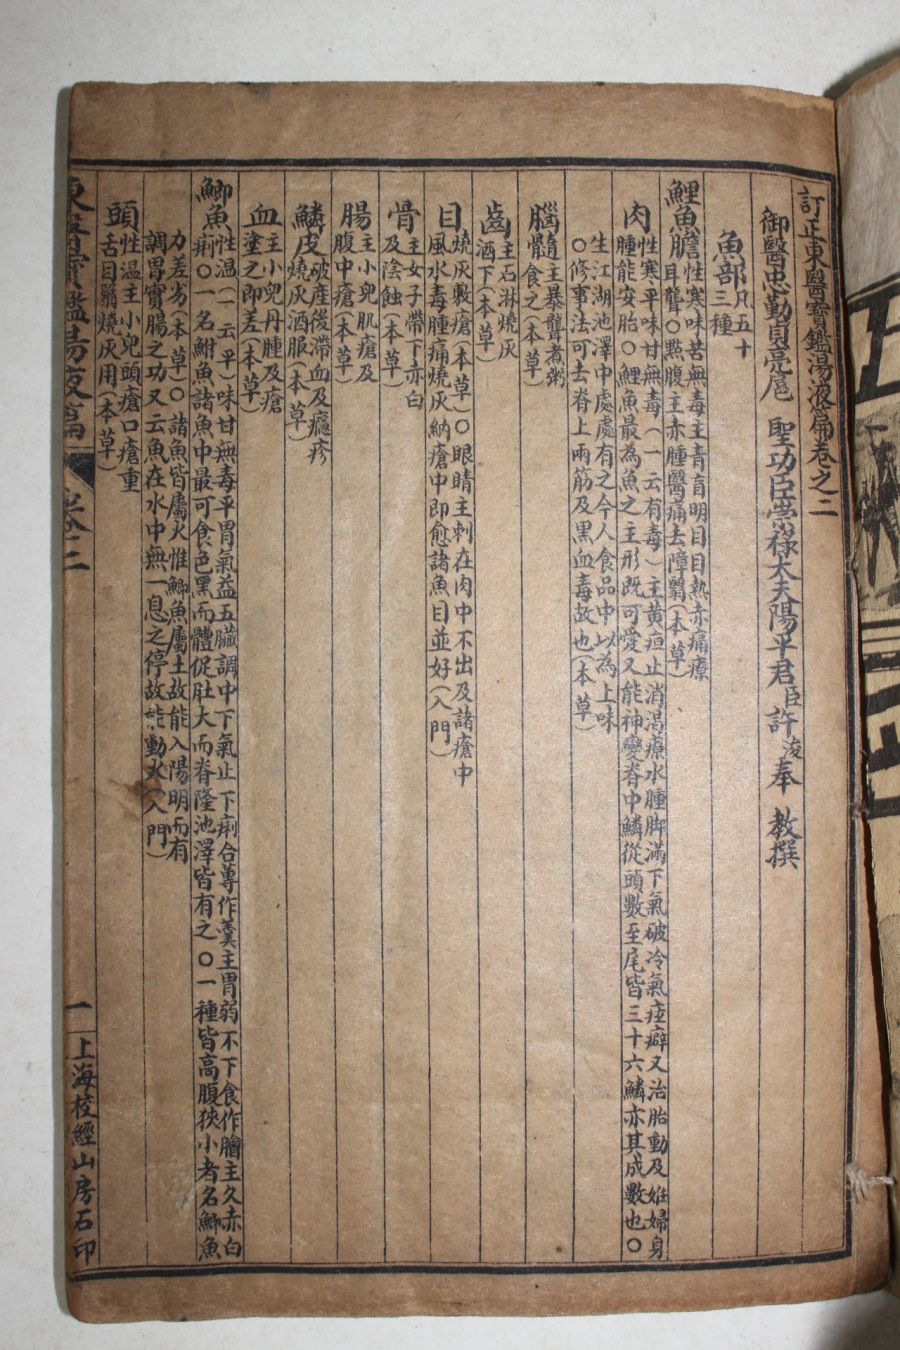 訂正東醫寶鑑湯液篇卷之二
御醫忠勤貞亮扈 聖功臣崇祿大夫陽平君臣許浚奉 教撰
魚部凡五十三種
鯉魚膽性寒味苦無毒主青盲明目目熱赤痛療
耳聾〇點腹主赤腫醫痛去障翳(本草)
肉性寒平味甘無毒(一云有毒)主黃疸止消渴療水腫脚滿下氣破冷氣痃癖又治胎動及姙婦身
腫能安胎〇鯉魚最為魚之主形既可愛又能神變脊中鱗從頭數至尾皆三十六鱗亦其成數也〇
生江湖池澤中處處有之今人食品中以為上味
〇修事法可去脊上兩筋及黑血毒故也(本草)
腦髓主暴聾煮粥
食之(本草)
齒主石淋燒灰
酒下(本草)
目燒灰敷瘡(本草)〇眼睛主刺在肉中不出及諸瘡中
風水毒腫痛燒灰納瘡中即愈諸魚目並好(入門)
骨主女子帶下赤白
及陰蝕(本草)
腸主小兒肌瘡及
腹中瘡(本草)
鱗皮破產後滯血及癮疹
燒灰酒服(本草)
血主小兒丹腫及瘡
塗之即差(本草)
鯽魚性溫(一云平)味甘無毒平胃氣益五臟調中下氣止下痢合蓴作羹主胃弱不下食作膾主久赤白
痢〇一名鮒魚諸魚中最可食色黑而體促肚大而脊隆池澤皆有之〇一種皆高腹狹小者名鯽魚
力差劣(本草)〇諸魚皆屬火惟鯽魚屬土故能入陽明而有
調胃實腸之功又云魚在水中無一息之停故能動火(入門)
頭性溫主小兒頭瘡口瘡重
舌目翳燒灰用(本草)
東醫寶鑑湯液篇 卷二 一 上海校經山房石印